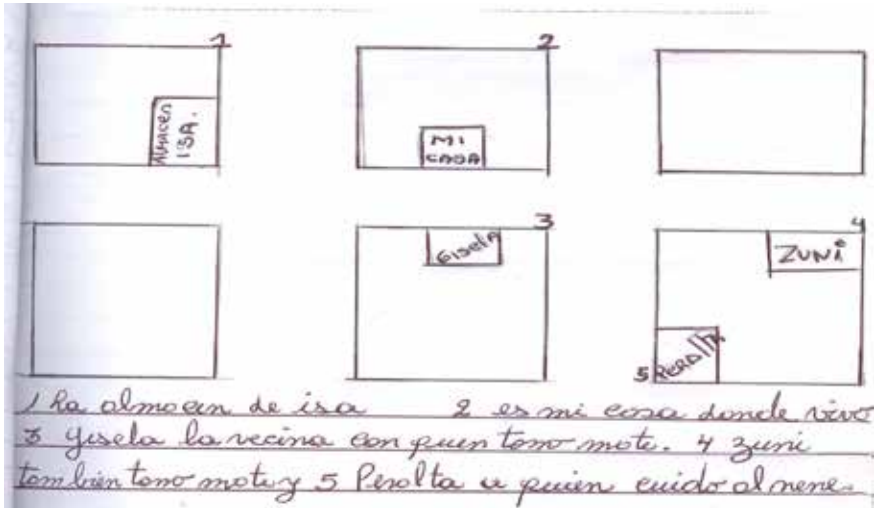 1
2
ALMACEN
ISA.
MI
CASA
3
4
Gisela
ZUNi
5 Peralta
1 La almacen de isa 2 es mi casa donde vivo
3 Gisela la vecina con quien tomo mate. 4 zuni
tambien tomo mate y 5 Peralta a quien cuido al nene.